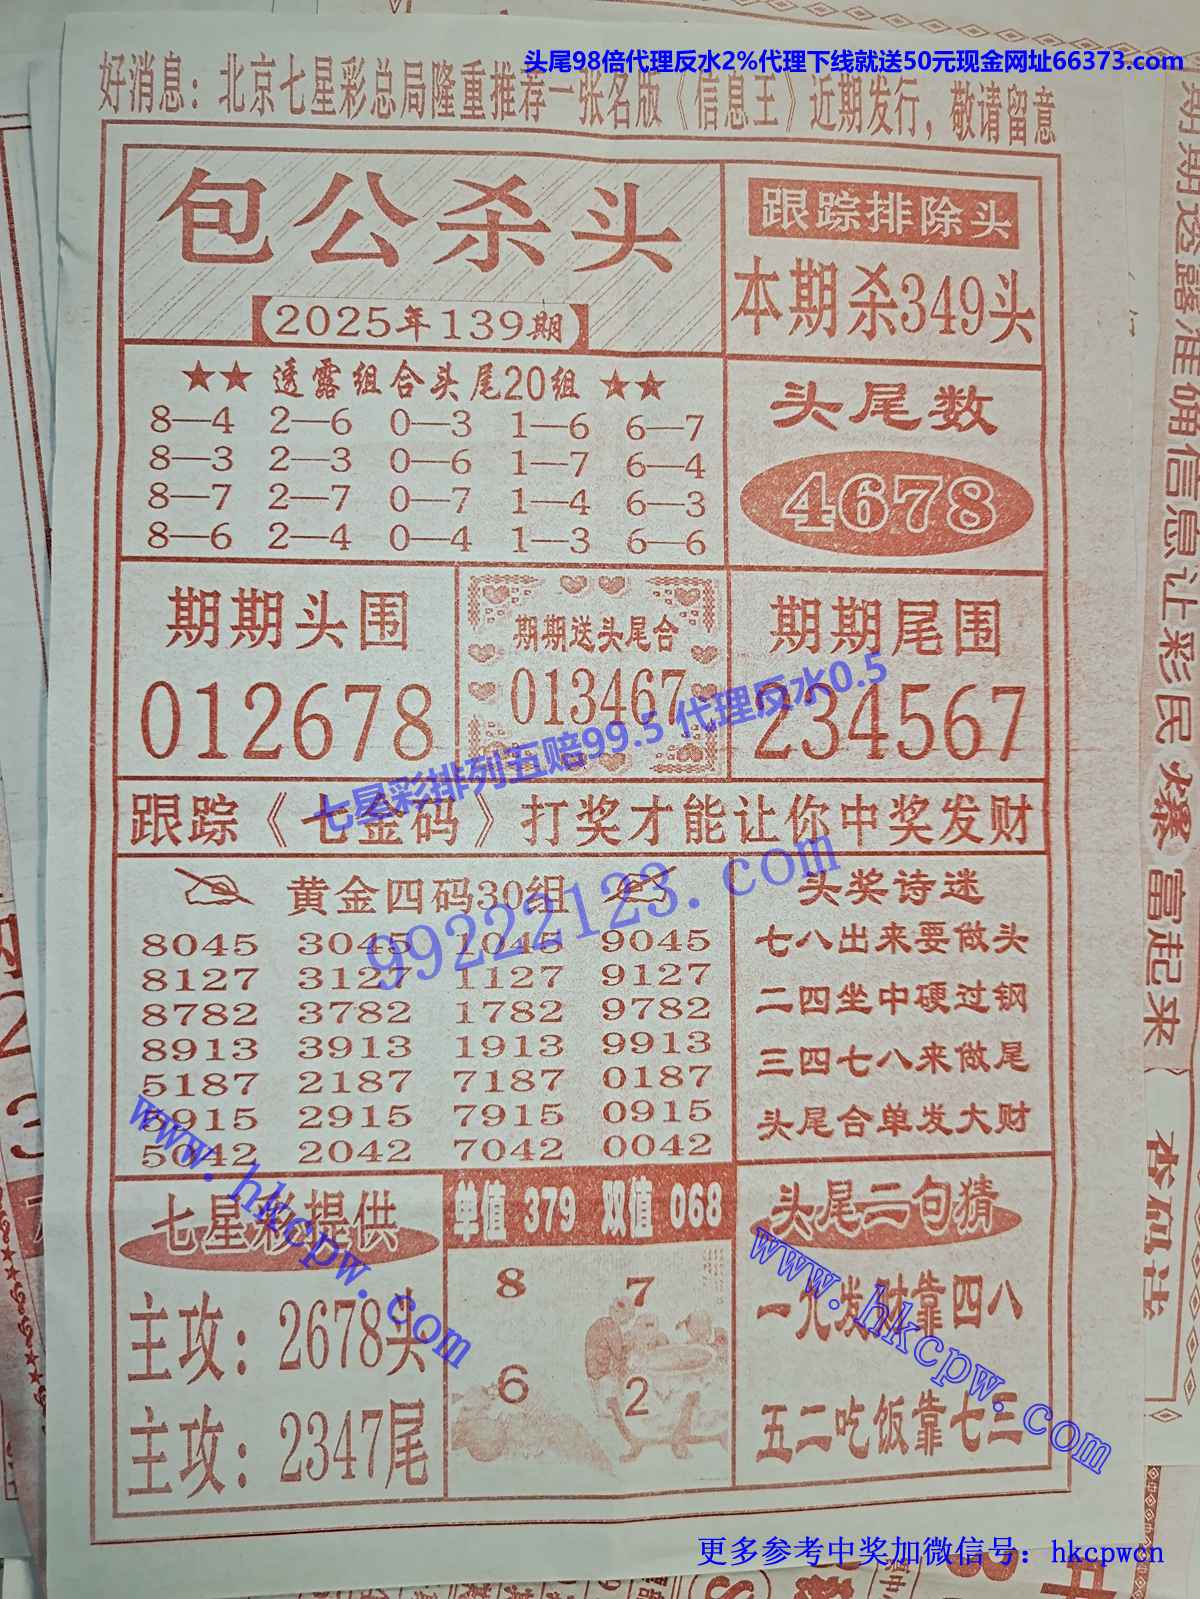 头尾98倍代理反水2%代理下线就送50元现金网址66373.com
好消息：北京七星彩总局隆重推荐一张名版《信息王》近期发行，敬请留意
包公杀头
【2025年139期】
跟踪排除头
本期杀349头
★★ 透露组合头尾20组 ★★
8—4 2—6 0—3 1—6 6—7
8—3 2—3 0—6 1—7 6—4
8—7 2—7 0—7 1—4 6—3
8—6 2—4 0—4 1—3 6—6
头尾数
4678
期期头围
012678
期期送头尾合
013467
期期尾围
234567
七星彩排列五赔99.5 代理反水0.5
跟踪《七金码》打奖才能让你中奖发财
99222123.com
黄金四码30组
8045 3045 1045 9045
8127 3127 1127 9127
8782 3782 1782 9782
8913 3913 1913 9913
5187 2187 7187 0187
5915 2915 7915 0915
5042 2042 7042 0042
头奖诗迷
七八出来要做头
二四坐中硬过钢
三四七八来做尾
头尾合单发大财
www.hkcpw.com
七星彩提供
主攻：2678头
主攻：2347尾
单值 379 双值 068
8 7
6 2
头尾二句猜
一九发财靠四八
五二吃饭靠七三
www.hkcpw.com
更多参考中奖加微信号：hkcpwcn
期期透露准确信息让彩民爆富起来